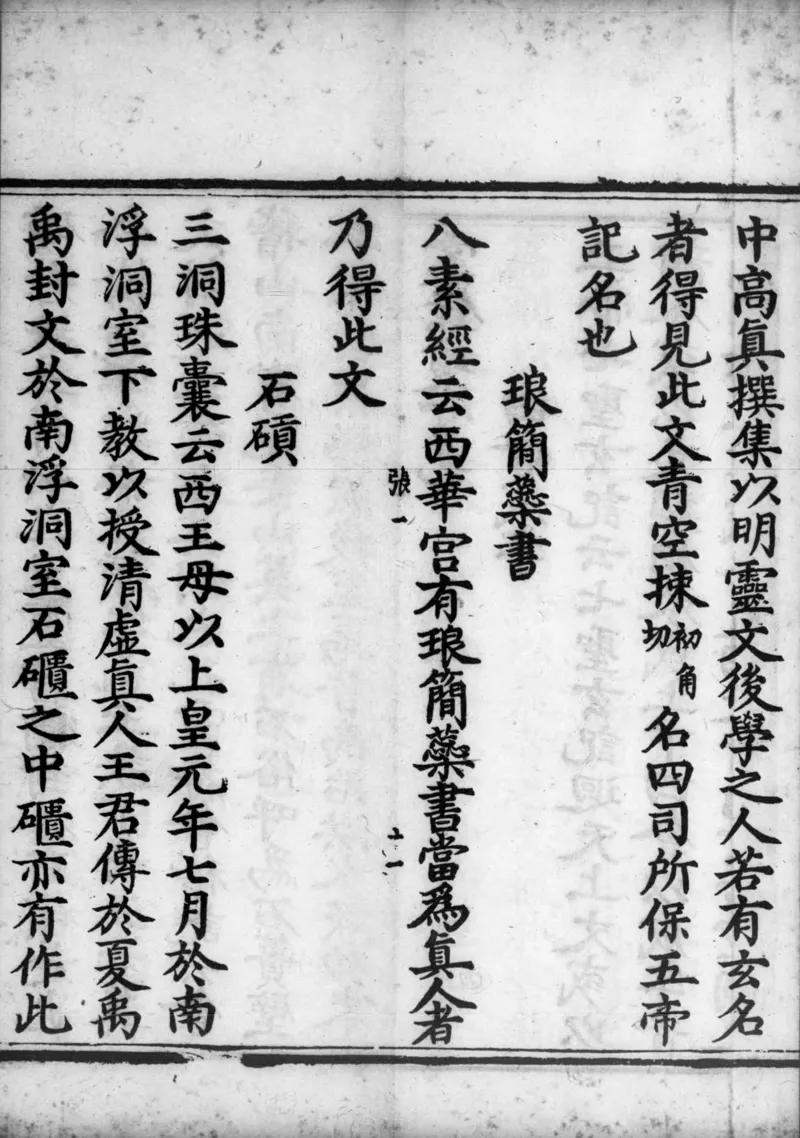 中高眞撰集以明靈文後學之人若有玄名
者得見此文青空㨂初角切名四司所保五帝
記名也
琅簡蘂書
八素經云西華宫有琅簡蘂書當爲眞人者
張一
十一
乃得此文
石磧
三洞珠囊云西王母以上皇元年七月於南
浮洞室下教以授清虛眞人王君傳於夏禹
禹封文於南浮洞室石礩之中礩亦有作此